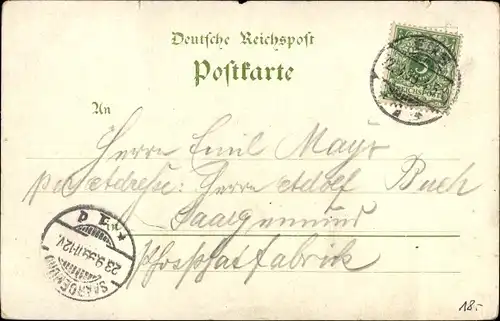 Deutsche Reichspost
Postkarte
EMS
An
Herrn Emil Mayr
per Adresse: Herrn Adolf Buch
Saargemünd
Phosphatfabrik
SAARGEMÜND
23.9.99. 11-12V.
18.-